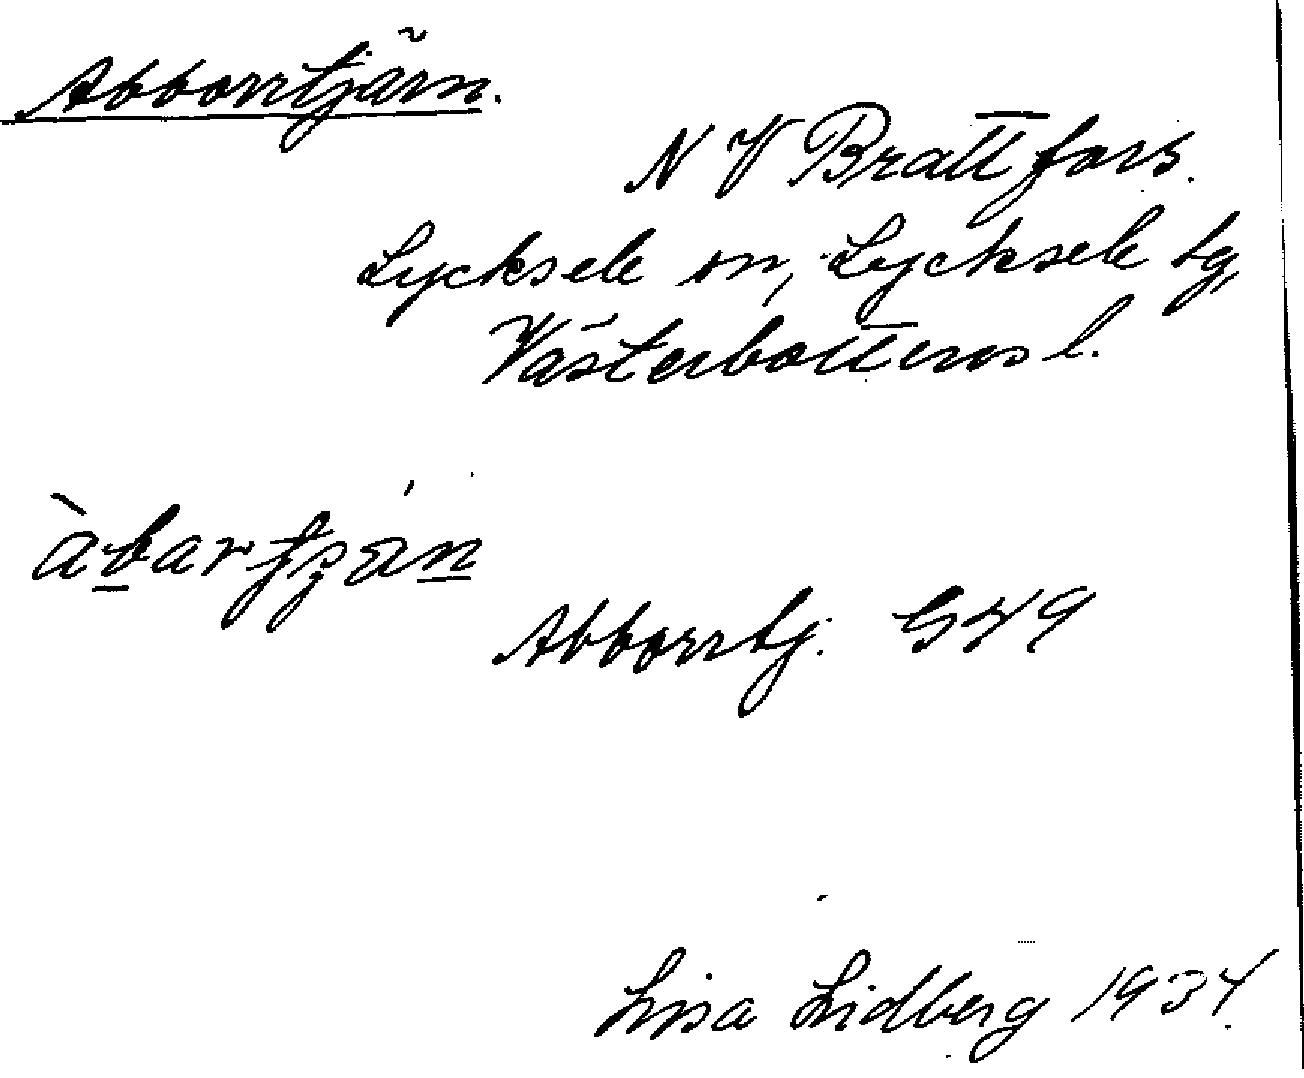 Abborrtjärn.
N V Brattfors.
Lycksele sn, Lycksele tg,
Västerbottens l.
Abborrtj.
Lisa Lidberg 1934.